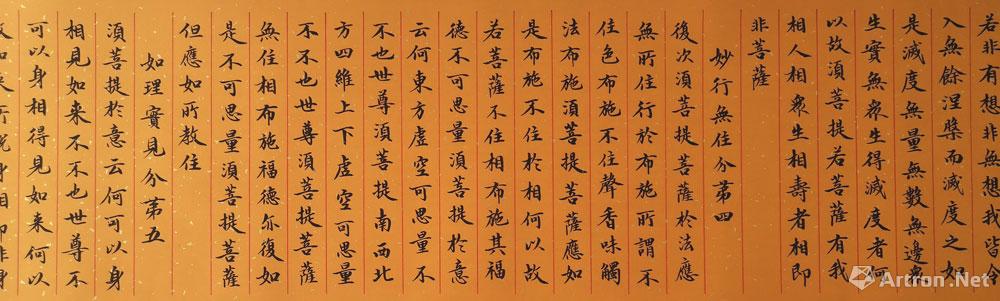 若非有想非無想我皆令
入無餘涅槃而滅度之如
是滅度無量無數無邊衆
生實無衆生得滅度者何
以故須菩提若菩薩有我
相人相衆生相壽者相即
非菩薩
妙行無住分第四
復次須菩提菩薩於法應
無所住行於布施所謂不
住色布施不住聲香味觸
法布施須菩提菩薩應如
是布施不住於相何以故
若菩薩不住相布施其福
德不可思量須菩提於意
云何東方虛空可思量不
不也世尊須菩提南西北
方四維上下虛空可思量
不不也世尊須菩提菩薩
無住相布施福德亦復如
是不可思量須菩提菩薩
但應如所教住
如理實見分第五
須菩提於意云何可以身
相見如来不不也世尊不
可以身相得見如来何以
故如来所說身相即非身
Artron.Net